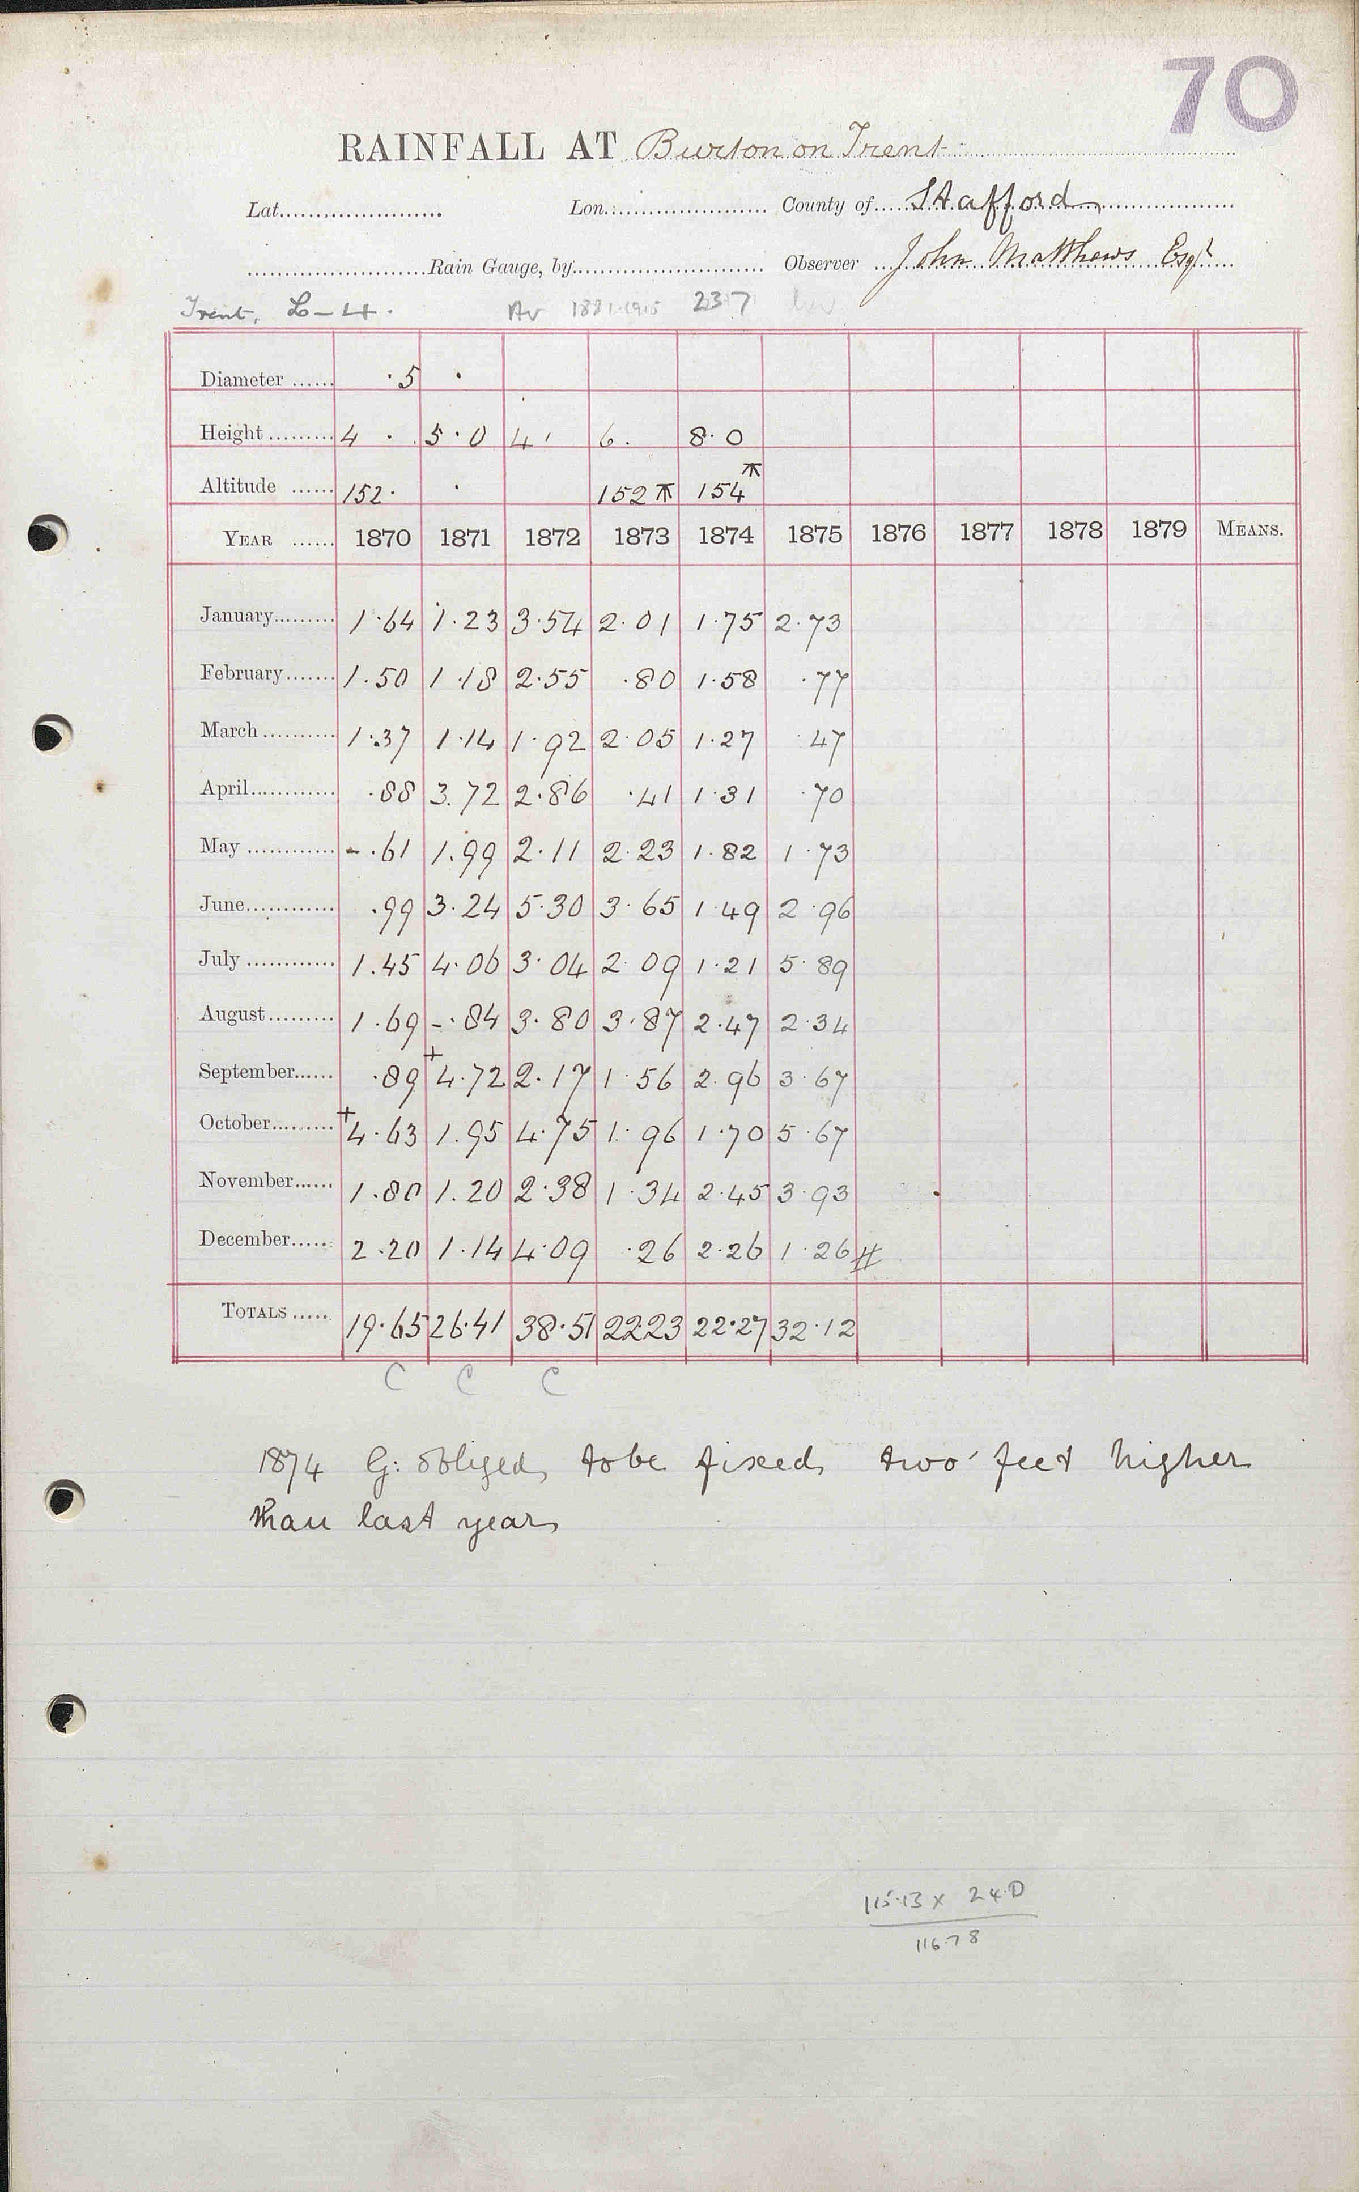 70
RAINFALL AT Burton on Trent
Lat. Lon. County of Stafford
Rain Gauge, by Observer John Matthews Esqr
Trent. L-4. Av 1881-1915 23.7
Diameter ...... .5 .
Height ......... 4 . 5.0 4. 6. 8.0
Altitude ...... 152. . 152 ⊼ 154 ⊼
YEAR ...... 1870 1871 1872 1873 1874 1875 1876 1877 1878 1879 MEANS.
January ......... 1.64 1.23 3.54 2.01 1.75 2.73
February ....... 1.50 1.18 2.55 .80 1.58 .77
March .......... 1.37 1.14 1.92 2.05 1.27 .47
April ............ .88 3.72 2.86 .41 1.31 .70
May ............ - .61 1.99 2.11 2.23 1.82 1.73
June ............ .99 3.24 5.30 3.65 1.49 2.96
July ............ 1.45 4.06 3.04 2.09 1.21 5.89
August ......... 1.69 - .84 3.80 3.87 2.47 2.34
September ...... .89 +4.72 2.17 1.56 2.96 3.67
October ......... +4.63 1.95 4.75 1.96 1.70 5.67
November ...... 1.80 1.20 2.38 1.34 2.45 3.93
December ...... 2.20 1.14 4.09 .26 2.26 1.26 #
TOTALS ..... 19.65 26.41 38.51 22.23 22.27 32.12
C C C
1874 G: obliged to be fixed two feet higher
than last year
115.13 x 24.0
116.78